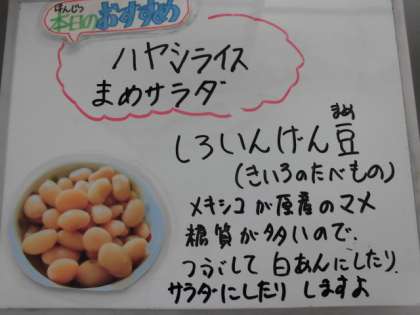 ほんじつ
本日のおすすめ
ハヤシライス
まめサラダ
まめ
しろいんげん豆
(きいろのたべもの)
メキシコが原産のマメ
糖質が多いので、
つぶして白あんにしたり
サラダにしたりしますよ